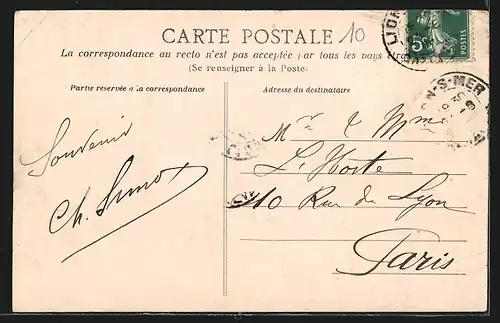 CARTE POSTALE
10
La correspondance au recto n'est pas acceptée par tous les pays
(Se renseigner à la Poste)
Partie réservée à la correspondance
Adresse du destinataire
5c
POSTES
N-S-MER
Souvenir
Ch.
Mr & Mme
L'Hoste
10 Rue du Lyon
Paris